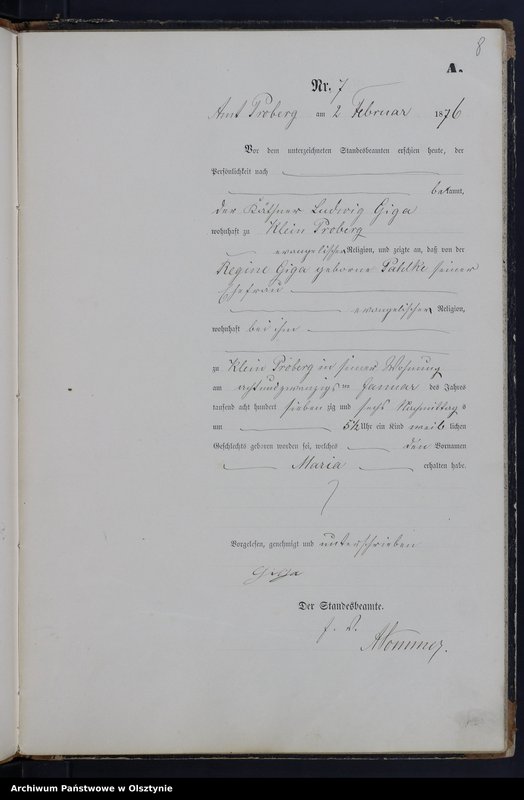 8
A.
Nr. 7
Amt Proberg am 2 Februar 1876
Vor dem unterzeichneten Standesbeamten erschien heute, der
Persönlichkeit nach
bekannt,
der Käthner Ludwig Giga
wohnhaft zu Klein Proberg
evangelischer Religion, und zeigte an, daß von der
Regine Giga geborne Pahlke seiner
Ehefrau
evangelischer Religion,
wohnhaft bei ihm
zu Klein Proberg in seiner Wohnung
am achtundzwanzigsten Januar des Jahres
tausend acht hundert siebenzig und sechs Nachmittags
um 5½ Uhr ein Kind weiblichen
Geschlechts geboren worden sei, welches den Vornamen
Maria erhalten habe.
Vorgelesen, genehmigt und unterschrieben
Der Standesbeamte.
Archiwum Państwowe w Olsztynie